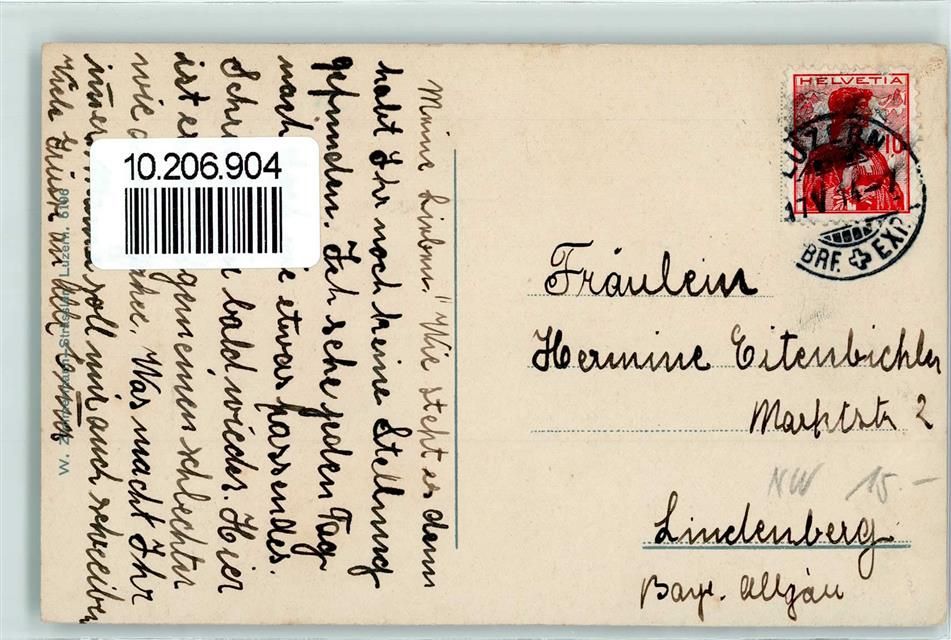 Meine Lieben! Wie steht es denn
habt Ihr noch keine Stellung
gefunden. Ich sehe jeden Tag
nach etwas passendes.
bald wieder. Hier
ist schlechter
wie Was macht Ihr
immer soll mir auch schreiben
Viele Grüsse an Alle
W. Luzern. 6106
10.206.904
HELVETIA
10
LUZERN
17.V.14-7
BRF. EXP.
Fräulein
Hermine Eitenbichler
Marktstr 2
NW 15.-
Lindenberg
Bayr. Allgäu